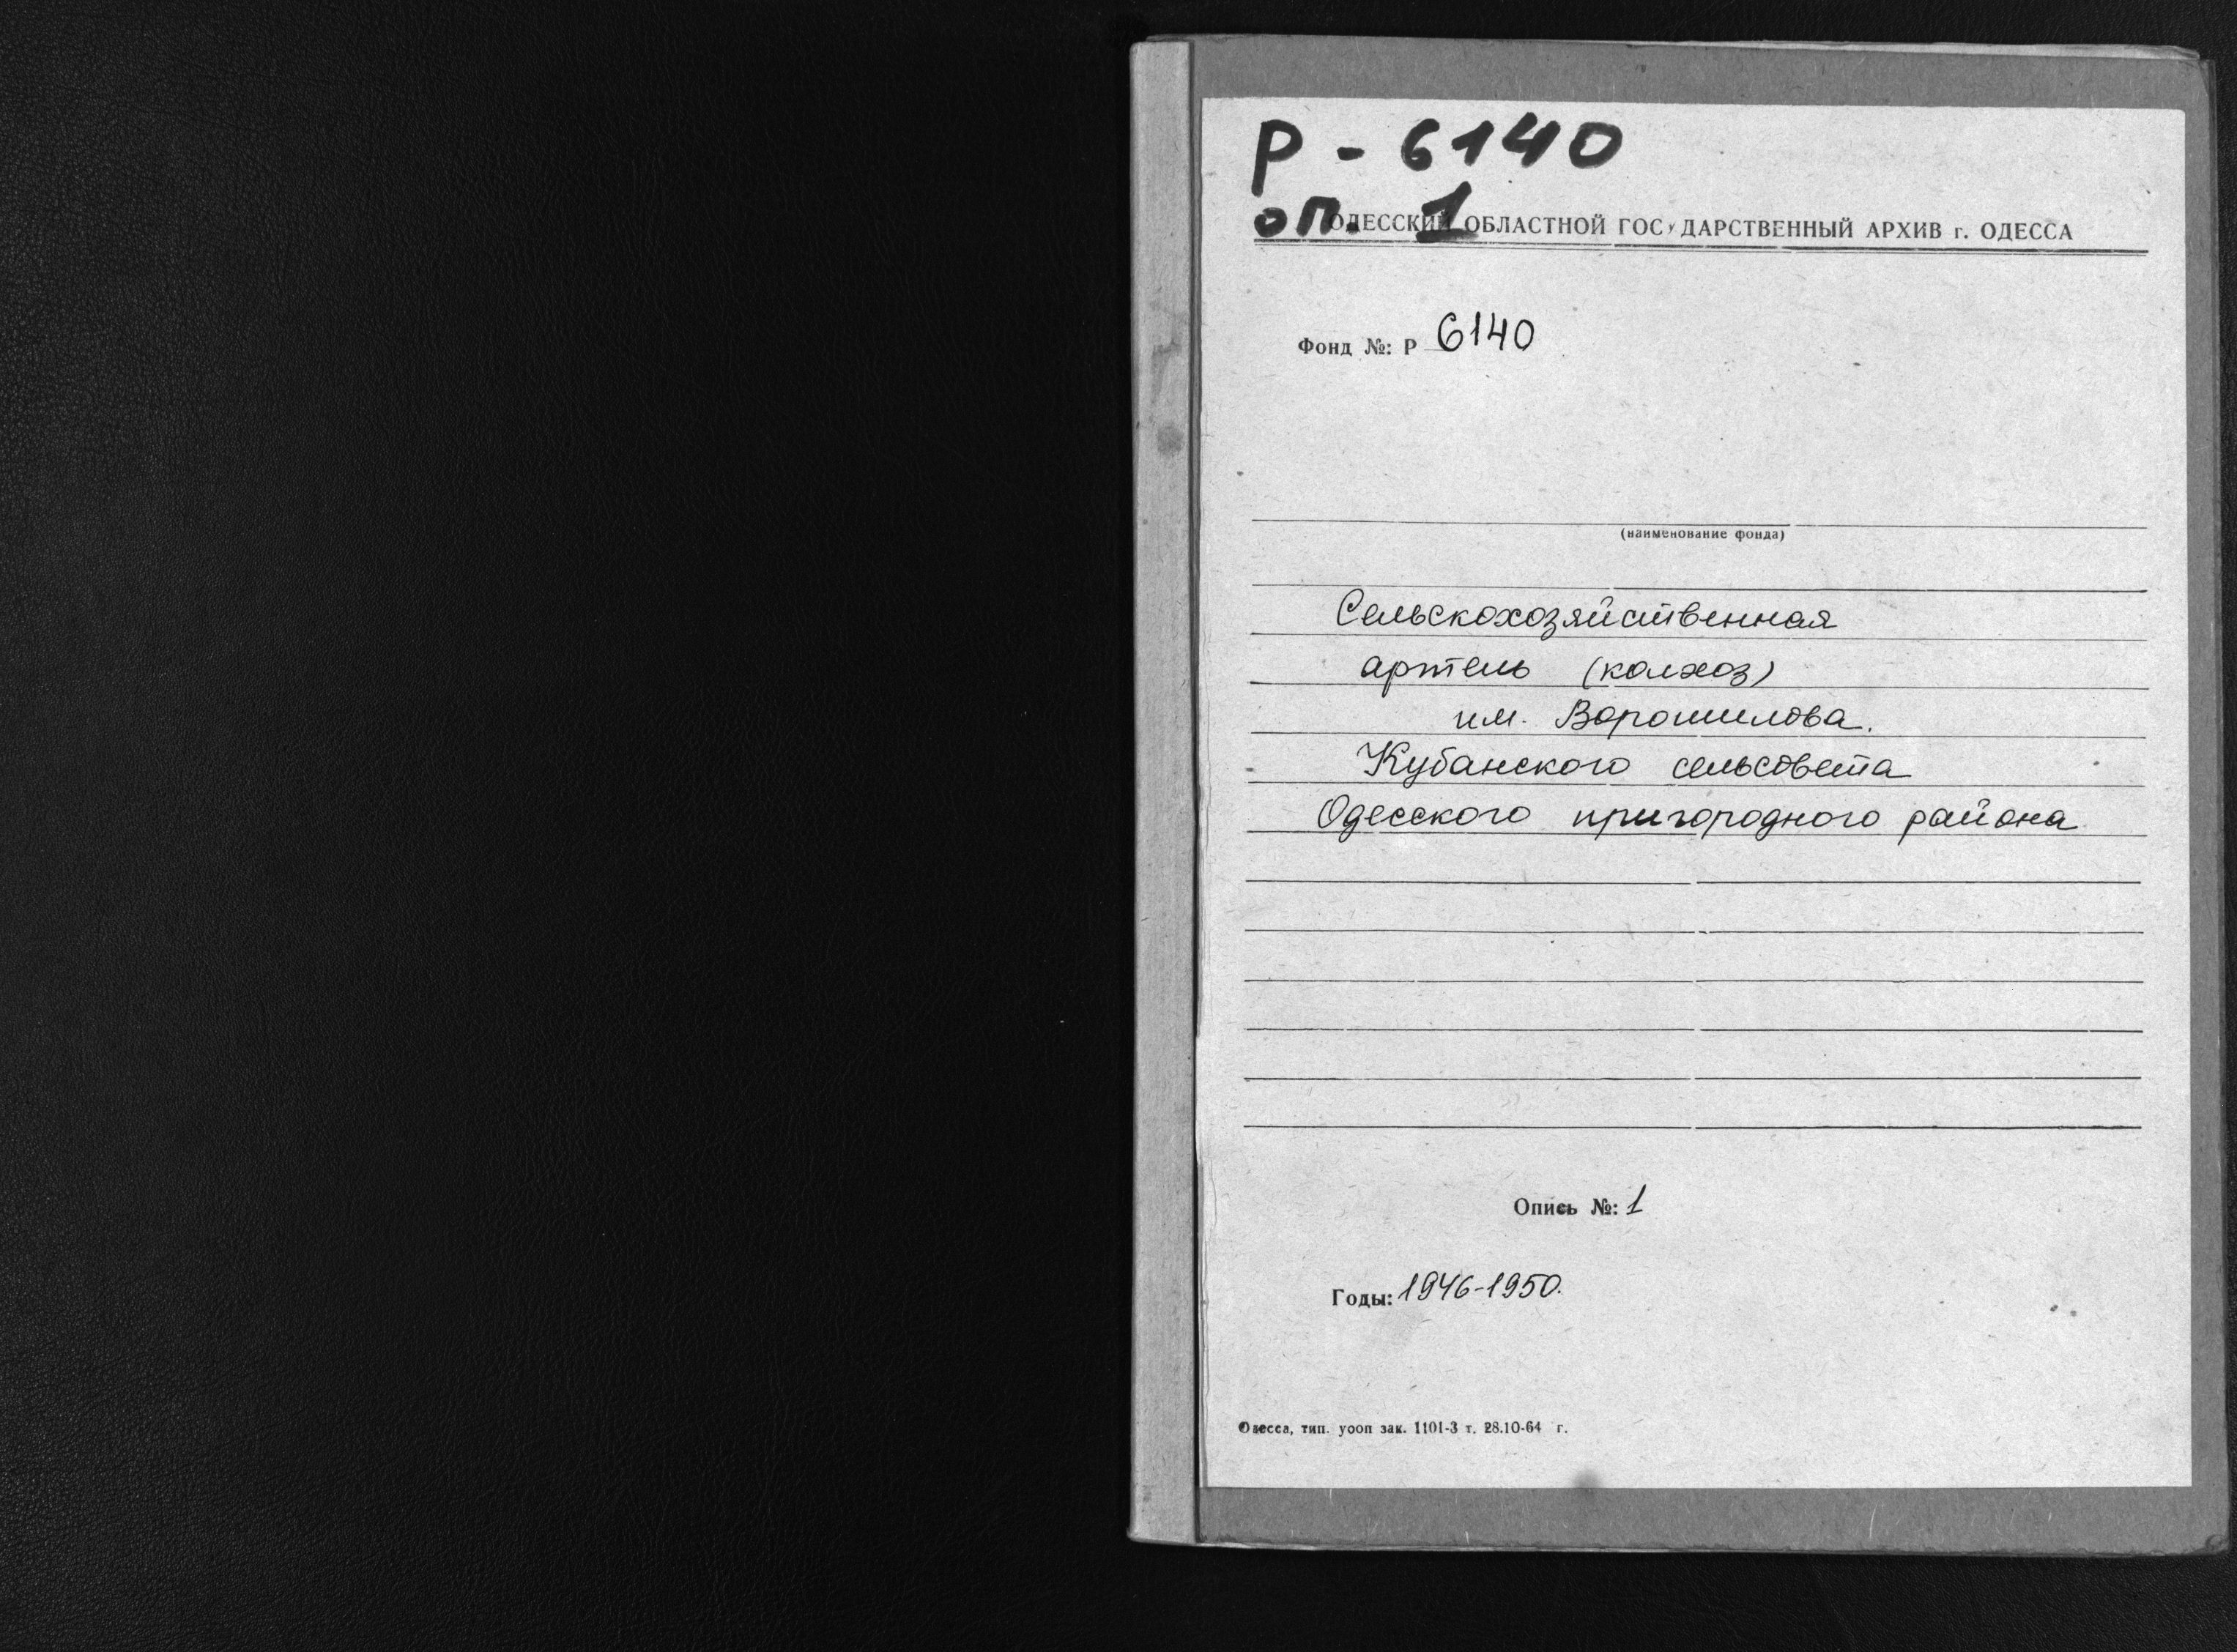 Р - 6140
оп. 1
ОДЕССКИЙ ОБЛАСТНОЙ ГОСУДАРСТВЕННЫЙ АРХИВ г. ОДЕССА
Фонд №: Р 6140
(наименование фонда)
Сельскохозяйственная
артель (колхоз)
им. Ворошилова.
Кубанского сельсовета
Одесского пригородного района
Опись №: 1
Годы: 1946-1950.
Одесса, тип. уооп зак. 1101-3 т. 28.10-64 г.